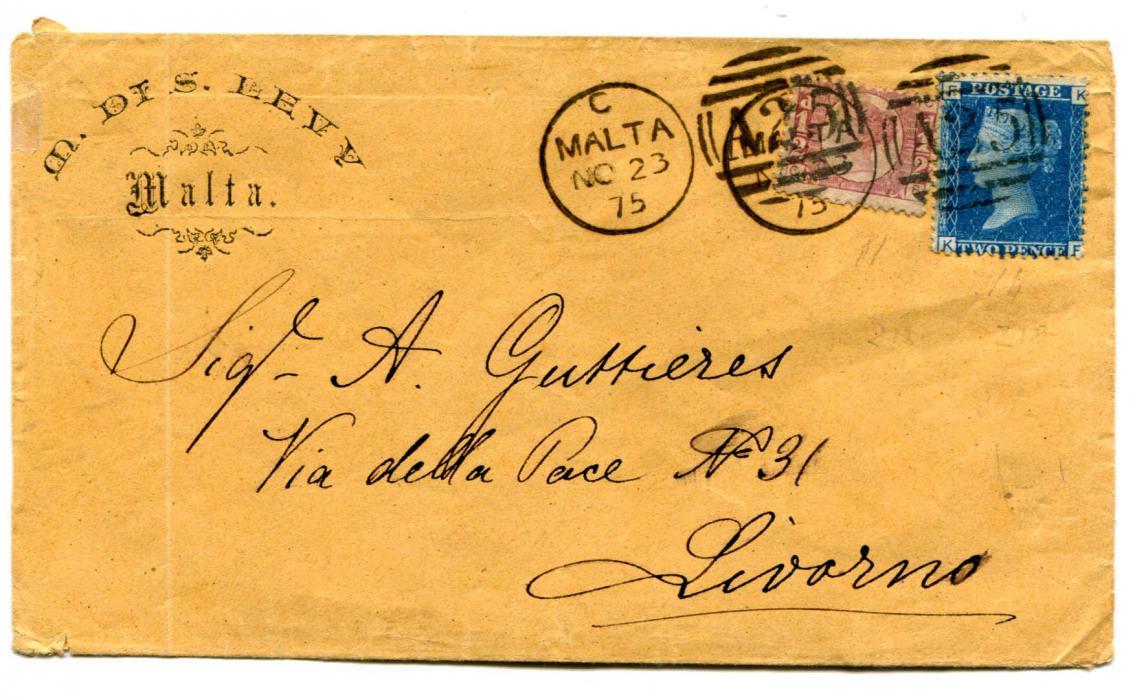 M. DI S. LEVY
Malta.
C
MALTA
NO 23
75
A25
MALTA
75
A25
F K
POSTAGE
K F
TWO PENCE
Sigr A. Guttieres
Via della Pace No 31
Livorno